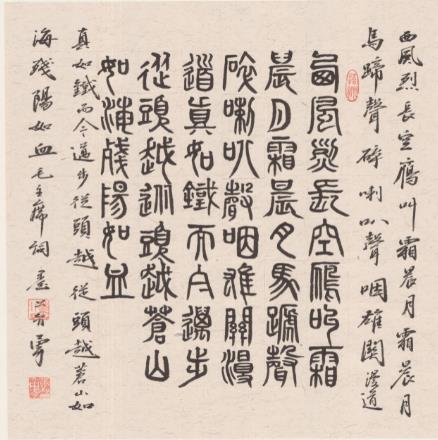 西風烈長空鴈叫霜晨月霜晨月
馬蹄聲碎喇叭聲咽雄關漫道
西風烈長空鴈叫霜
晨月霜晨月馬蹄聲
碎喇叭聲咽雄關漫
道真如鐵而今邁步
從頭越從頭越蒼山
如海殘陽如血
真如鐵而今邁步從頭越從頭越蒼山如
海殘陽如血毛主席詞